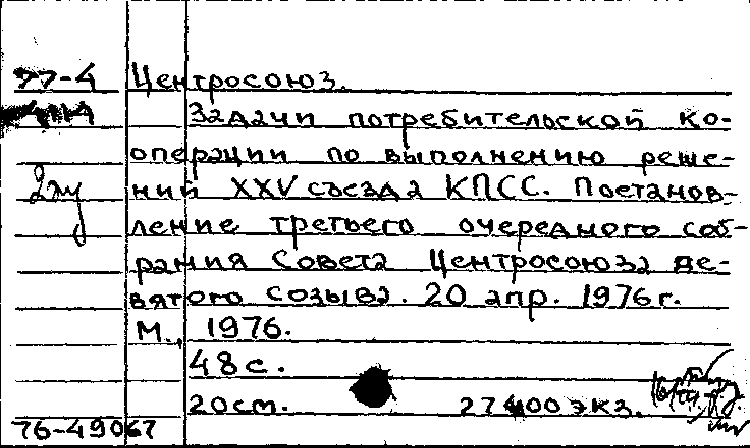 77-4 Центросоюз.
Задачи потребительской ко-
операции по выполнению реше-
2 эк ний XXV съезда КПСС. Постанов-
ление третьего очередного соб-
рания Совета Центросоюза де-
вятого созыва. 20 апр. 1976 г.
М., 1976.
48 с.
20 см. 27400 экз.
76-49067